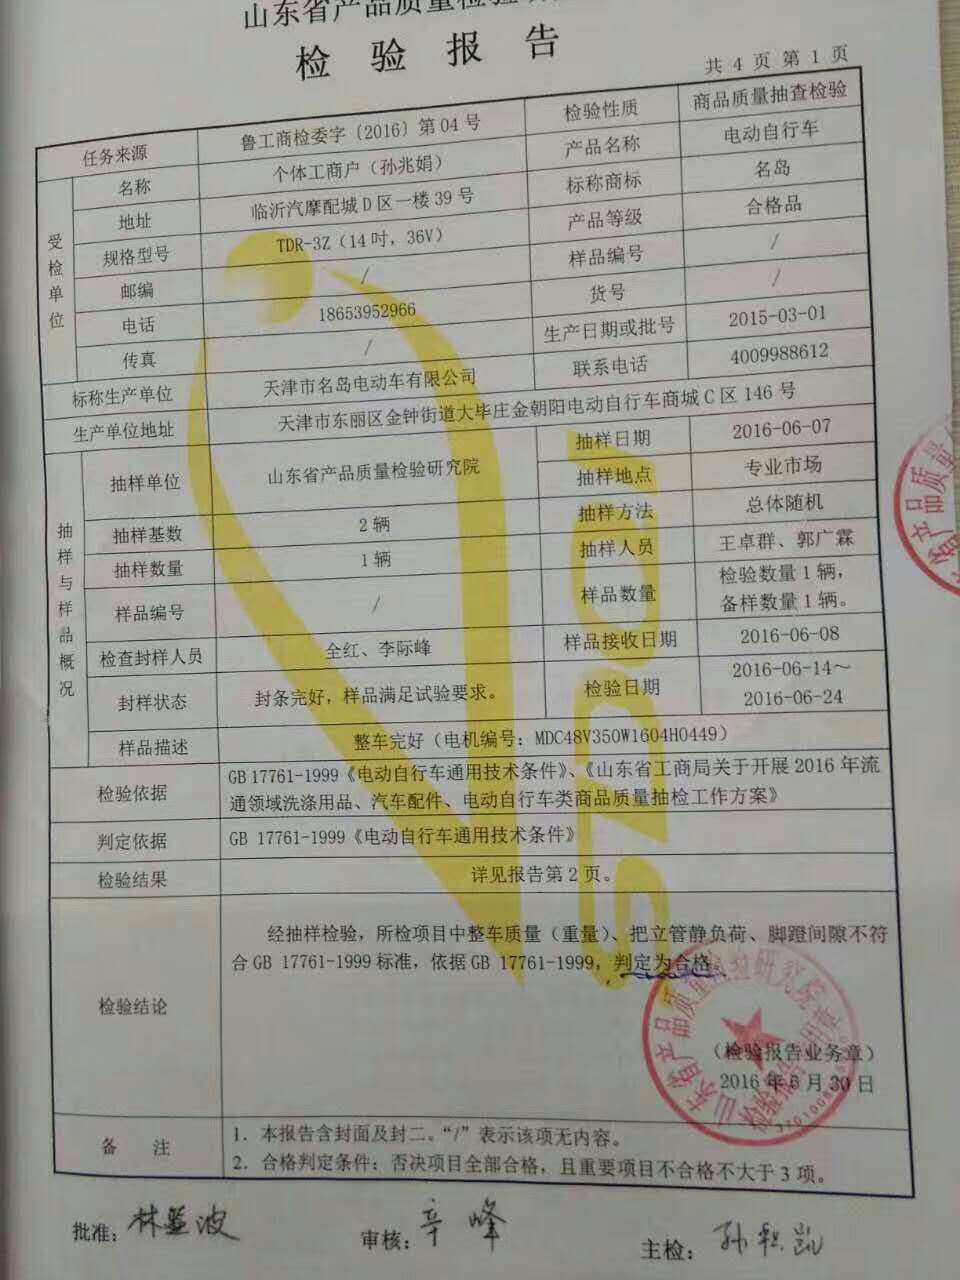 山东省产品质量检验
检 验 报 告
共 4 页 第 1 页
任务来源 鲁工商检委字〔2016〕第 04 号 检验性质 商品质量抽查检验
受检单位 名称 个体工商户（孙兆娟） 产品名称 电动自行车
地址 临沂汽摩配城 D 区一楼 39 号 标称商标 名岛
规格型号 TDR-3Z（14 吋，36V） 产品等级 合格品
邮编 / 样品编号 /
电话 18653952966 货号 /
传真 / 生产日期或批号 2015-03-01
标称生产单位 天津市名岛电动车有限公司 联系电话 4009988612
生产单位地址 天津市东丽区金钟街道大毕庄金朝阳电动自行车商城 C 区 146 号
抽样与样品概况 抽样单位 山东省产品质量检验研究院 抽样日期 2016-06-07
抽样地点 专业市场
抽样基数 2 辆 抽样方法 总体随机
抽样数量 1 辆 抽样人员 王卓群、郭广霖
样品编号 / 样品数量 检验数量 1 辆，
备样数量 1 辆。
检查封样人员 全红、李际峰 样品接收日期 2016-06-08
封样状态 封条完好，样品满足试验要求。 检验日期 2016-06-14～
2016-06-24
样品描述 整车完好（电机编号：MDC48V350W1604H0449）
检验依据 GB 17761-1999《电动自行车通用技术条件》、《山东省工商局关于开展 2016 年流
通领域洗涤用品、汽车配件、电动自行车类商品质量抽检工作方案》
判定依据 GB 17761-1999《电动自行车通用技术条件》
检验结果 详见报告第 2 页。
检验结论 经抽样检验，所检项目中整车质量（重量）、把立管静负荷、脚蹬间隙不符
合 GB 17761-1999 标准，依据 GB 17761-1999，判定为合格。
山东省产品质量检验研究院
（检验报告业务章）
2016 年 6 月 30 日
备 注 1．本报告含封面及封二。“/”表示该项无内容。
2．合格判定条件：否决项目全部合格，且重要项目不合格不大于 3 项。
批准： 审核：辛峰 主检：